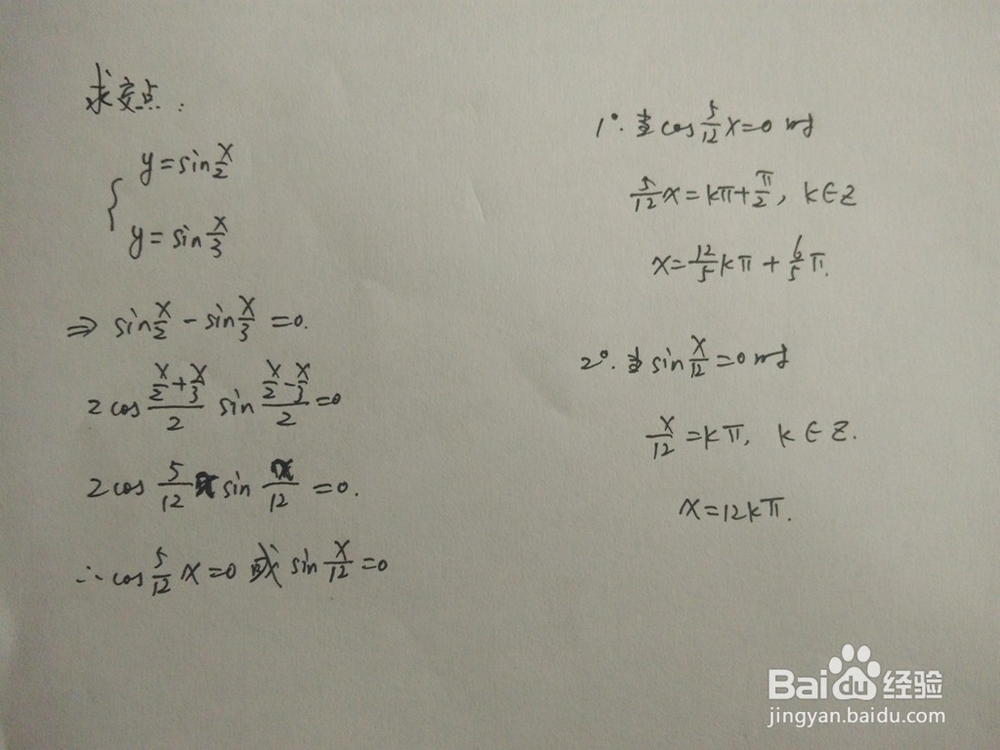 求交点:
y=sin x/2
y=sin x/3
⇒ sin x/2 - sin x/3 =0.
2cos (x/2+x/3)/2 sin (x/2-x/3)/2 =0
2cos 5/12 x sin x/12 =0.
∴ cos 5/12 x=0 或 sin x/12 =0
1°. 当cos 5/12 x=0 时
5/12 x=kπ+π/2, k∈Z
x=12/5 kπ + 6/5 π.
2°. 当 sin x/12 =0时
x/12 =kπ, k∈Z.
x=12kπ.
Baidu经验
jingyan.baidu.com